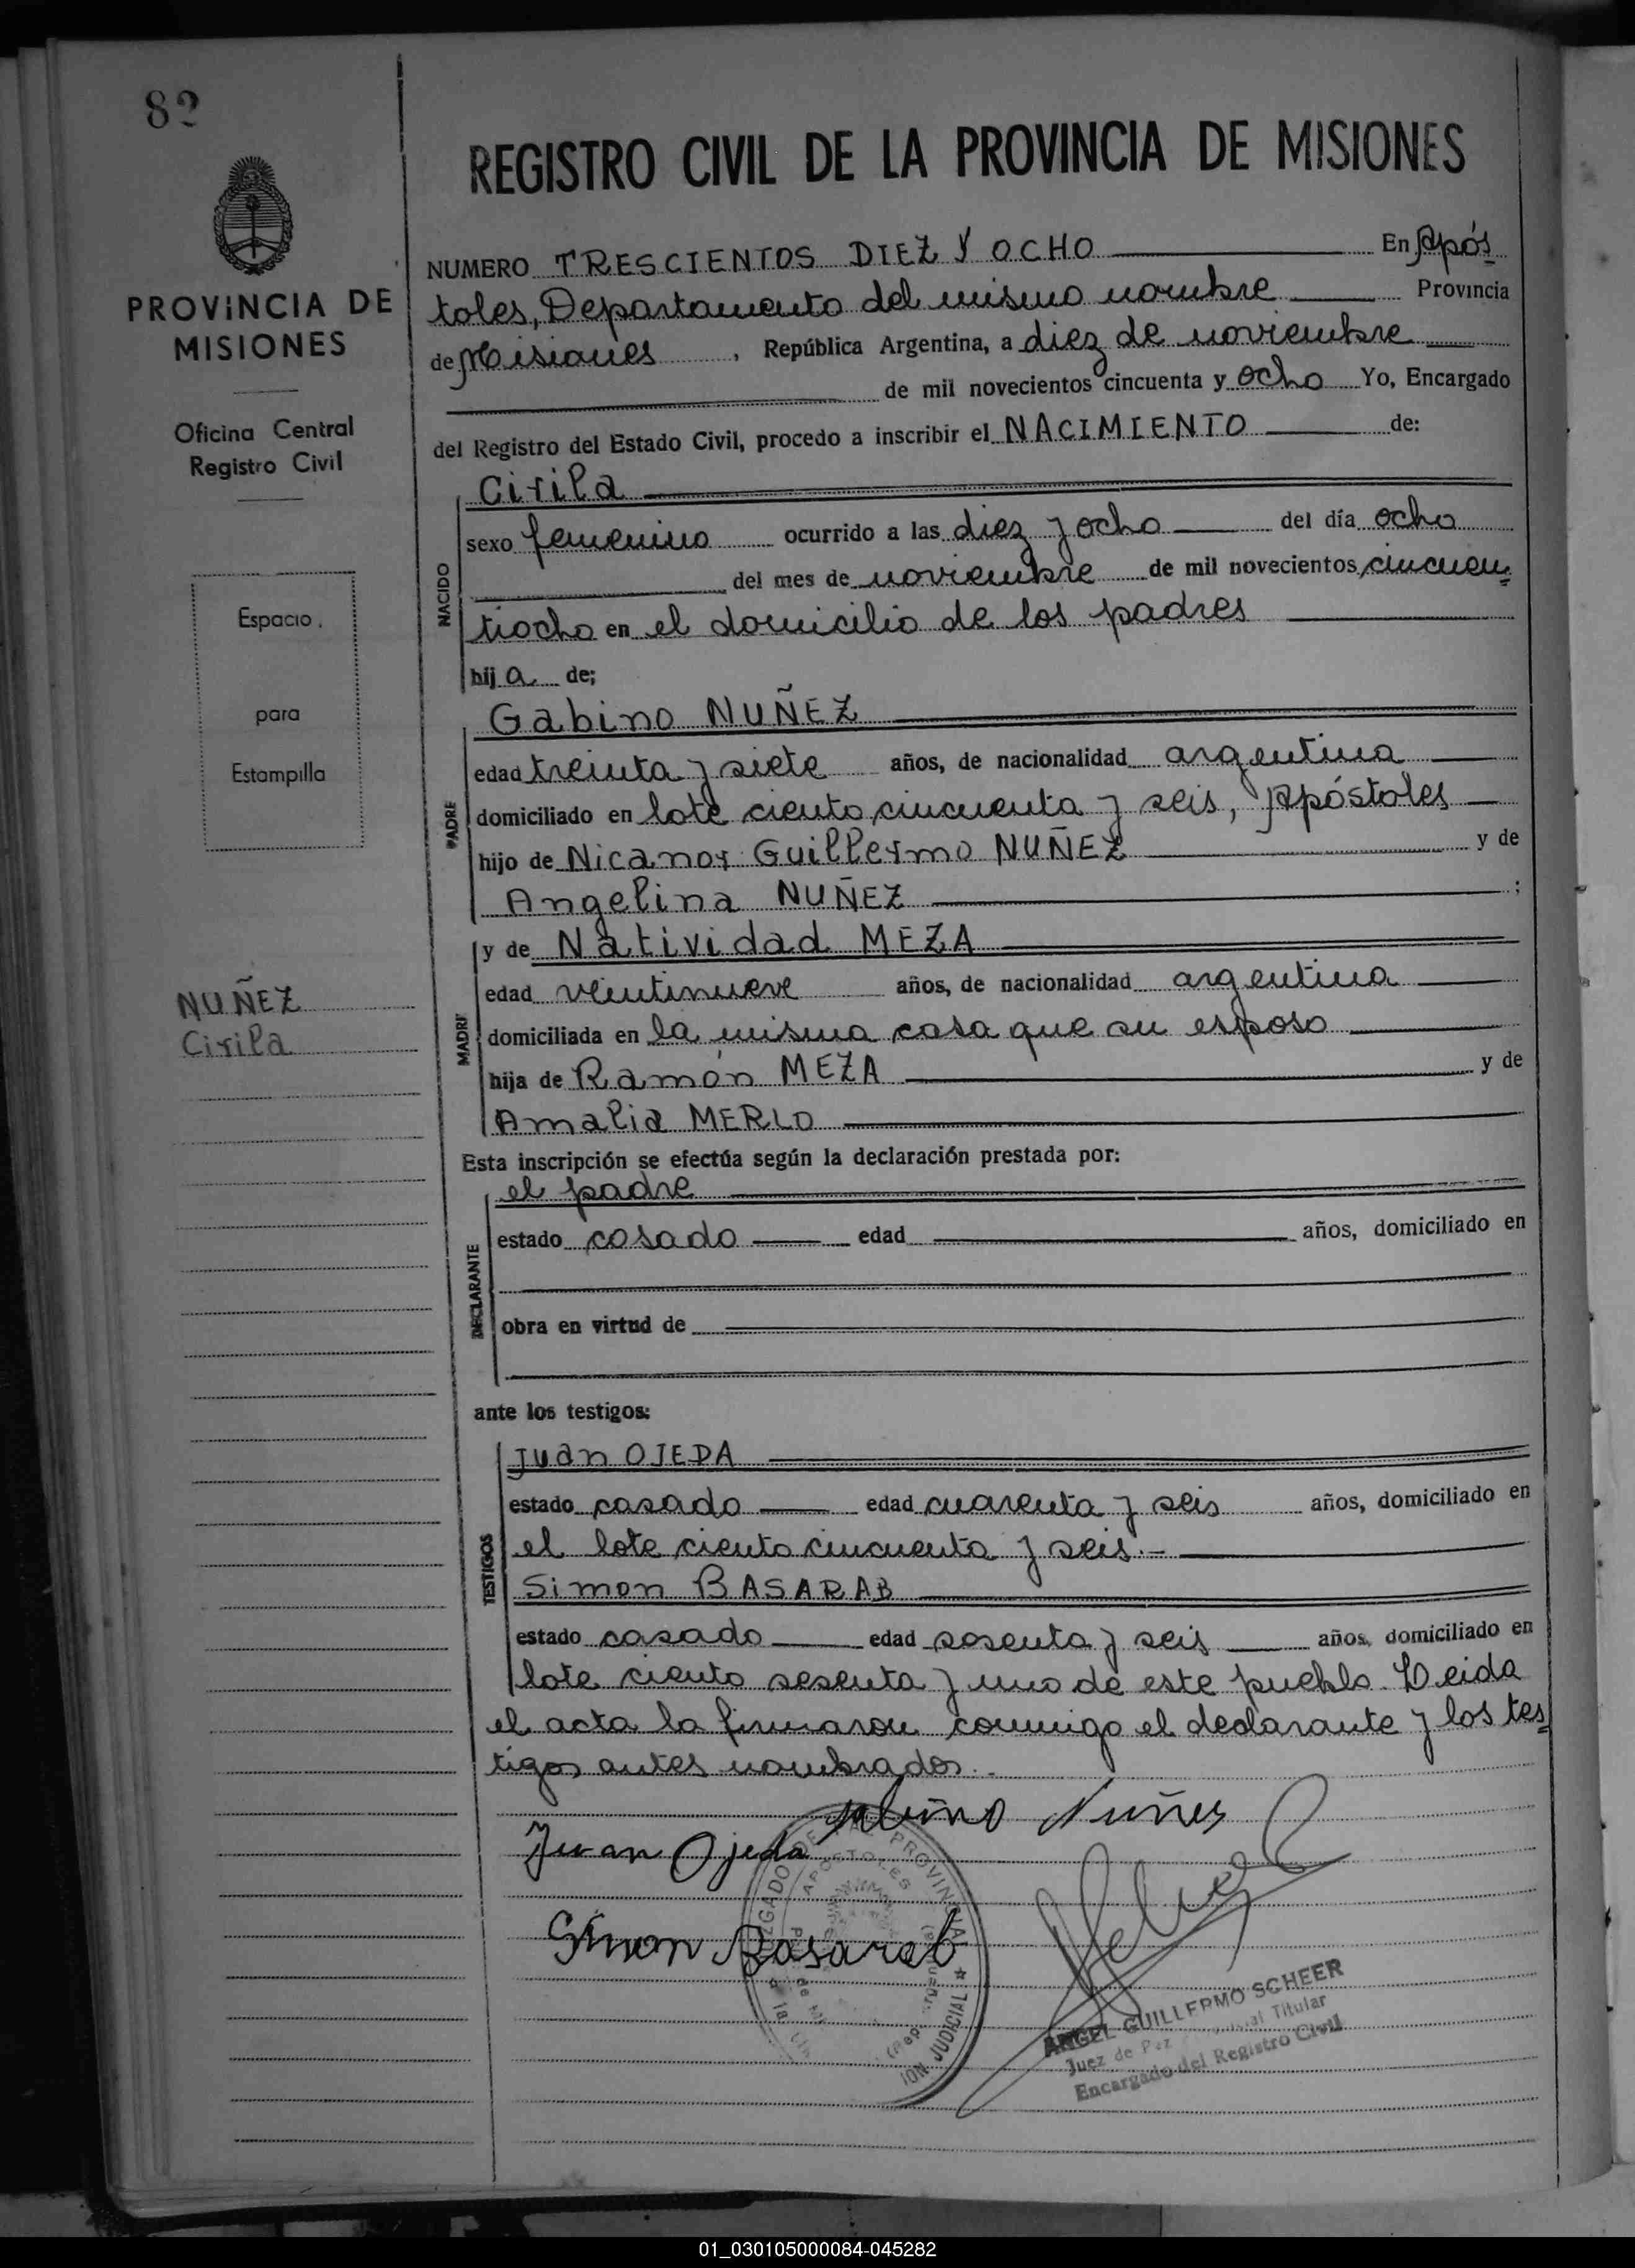 82
REGISTRO CIVIL DE LA PROVINCIA DE MISIONES
PROVINCIA DE
MISIONES
Oficina Central
Registro Civil
Espacio
para
Estampilla
NUÑEZ
Cirila
NUMERO TRESCIENTOS DIEZ Y OCHO En Após
toles, Departamento del mismo nombre Provincia
de Misiones, República Argentina, a diez de noviembre
de mil novecientos cincuenta y ocho Yo, Encargado
del Registro del Estado Civil, procedo a inscribir el NACIMIENTO de:
NACIDO
Cirila
sexo femenino ocurrido a las diez y ocho del día ocho
del mes de noviembre de mil novecientos cincuen
tiocho en el domicilio de los padres
hija de;
PADRE
Gabino NUÑEZ
edad treinta y siete años, de nacionalidad argentina
domiciliado en lote ciento cincuenta y seis, Apóstoles
hijo de Nicanor Guillermo NUÑEZ y de
Angelina NUÑEZ ;
MADRE
y de Natividad MEZA
edad veintinueve años, de nacionalidad argentina
domiciliada en la misma casa que su esposo
hija de Ramón MEZA y de
Amalia MERLO
Esta inscripción se efectúa según la declaración prestada por:
DECLARANTE
el padre
estado casado edad años, domiciliado en
obra en virtud de
ante los testigos:
TESTIGOS
Juan OJEDA
estado casado edad cuarenta y seis años, domiciliado en
el lote ciento cincuenta y seis.-
Simon BASARAB
estado casado edad sesenta y seis años, domiciliado en
lote ciento sesenta y uno de este pueblo. Leida
el acta la firmaron conmigo el declarante y los tes
tigos antes nombrados.-
Gabino Nuñez
Juan Ojeda
Simon Basarab
APOSTOLES
PROVINCIAL
JUDICIAL
ANGEL GUILLERMO SCHEER
Juez de Paz Titular
Encargado del Registro Civil
01_030105000084-045282